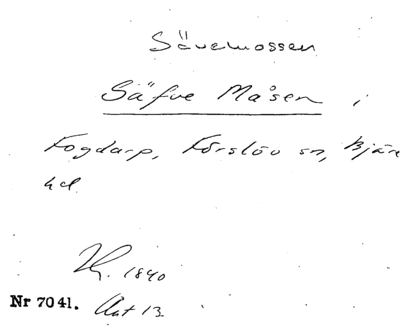 Sävemossen
Säfve Måsen i
Fogdarp, Förslöv sn, Bjäre
hd
1840
Nr 7041. Akt 13.